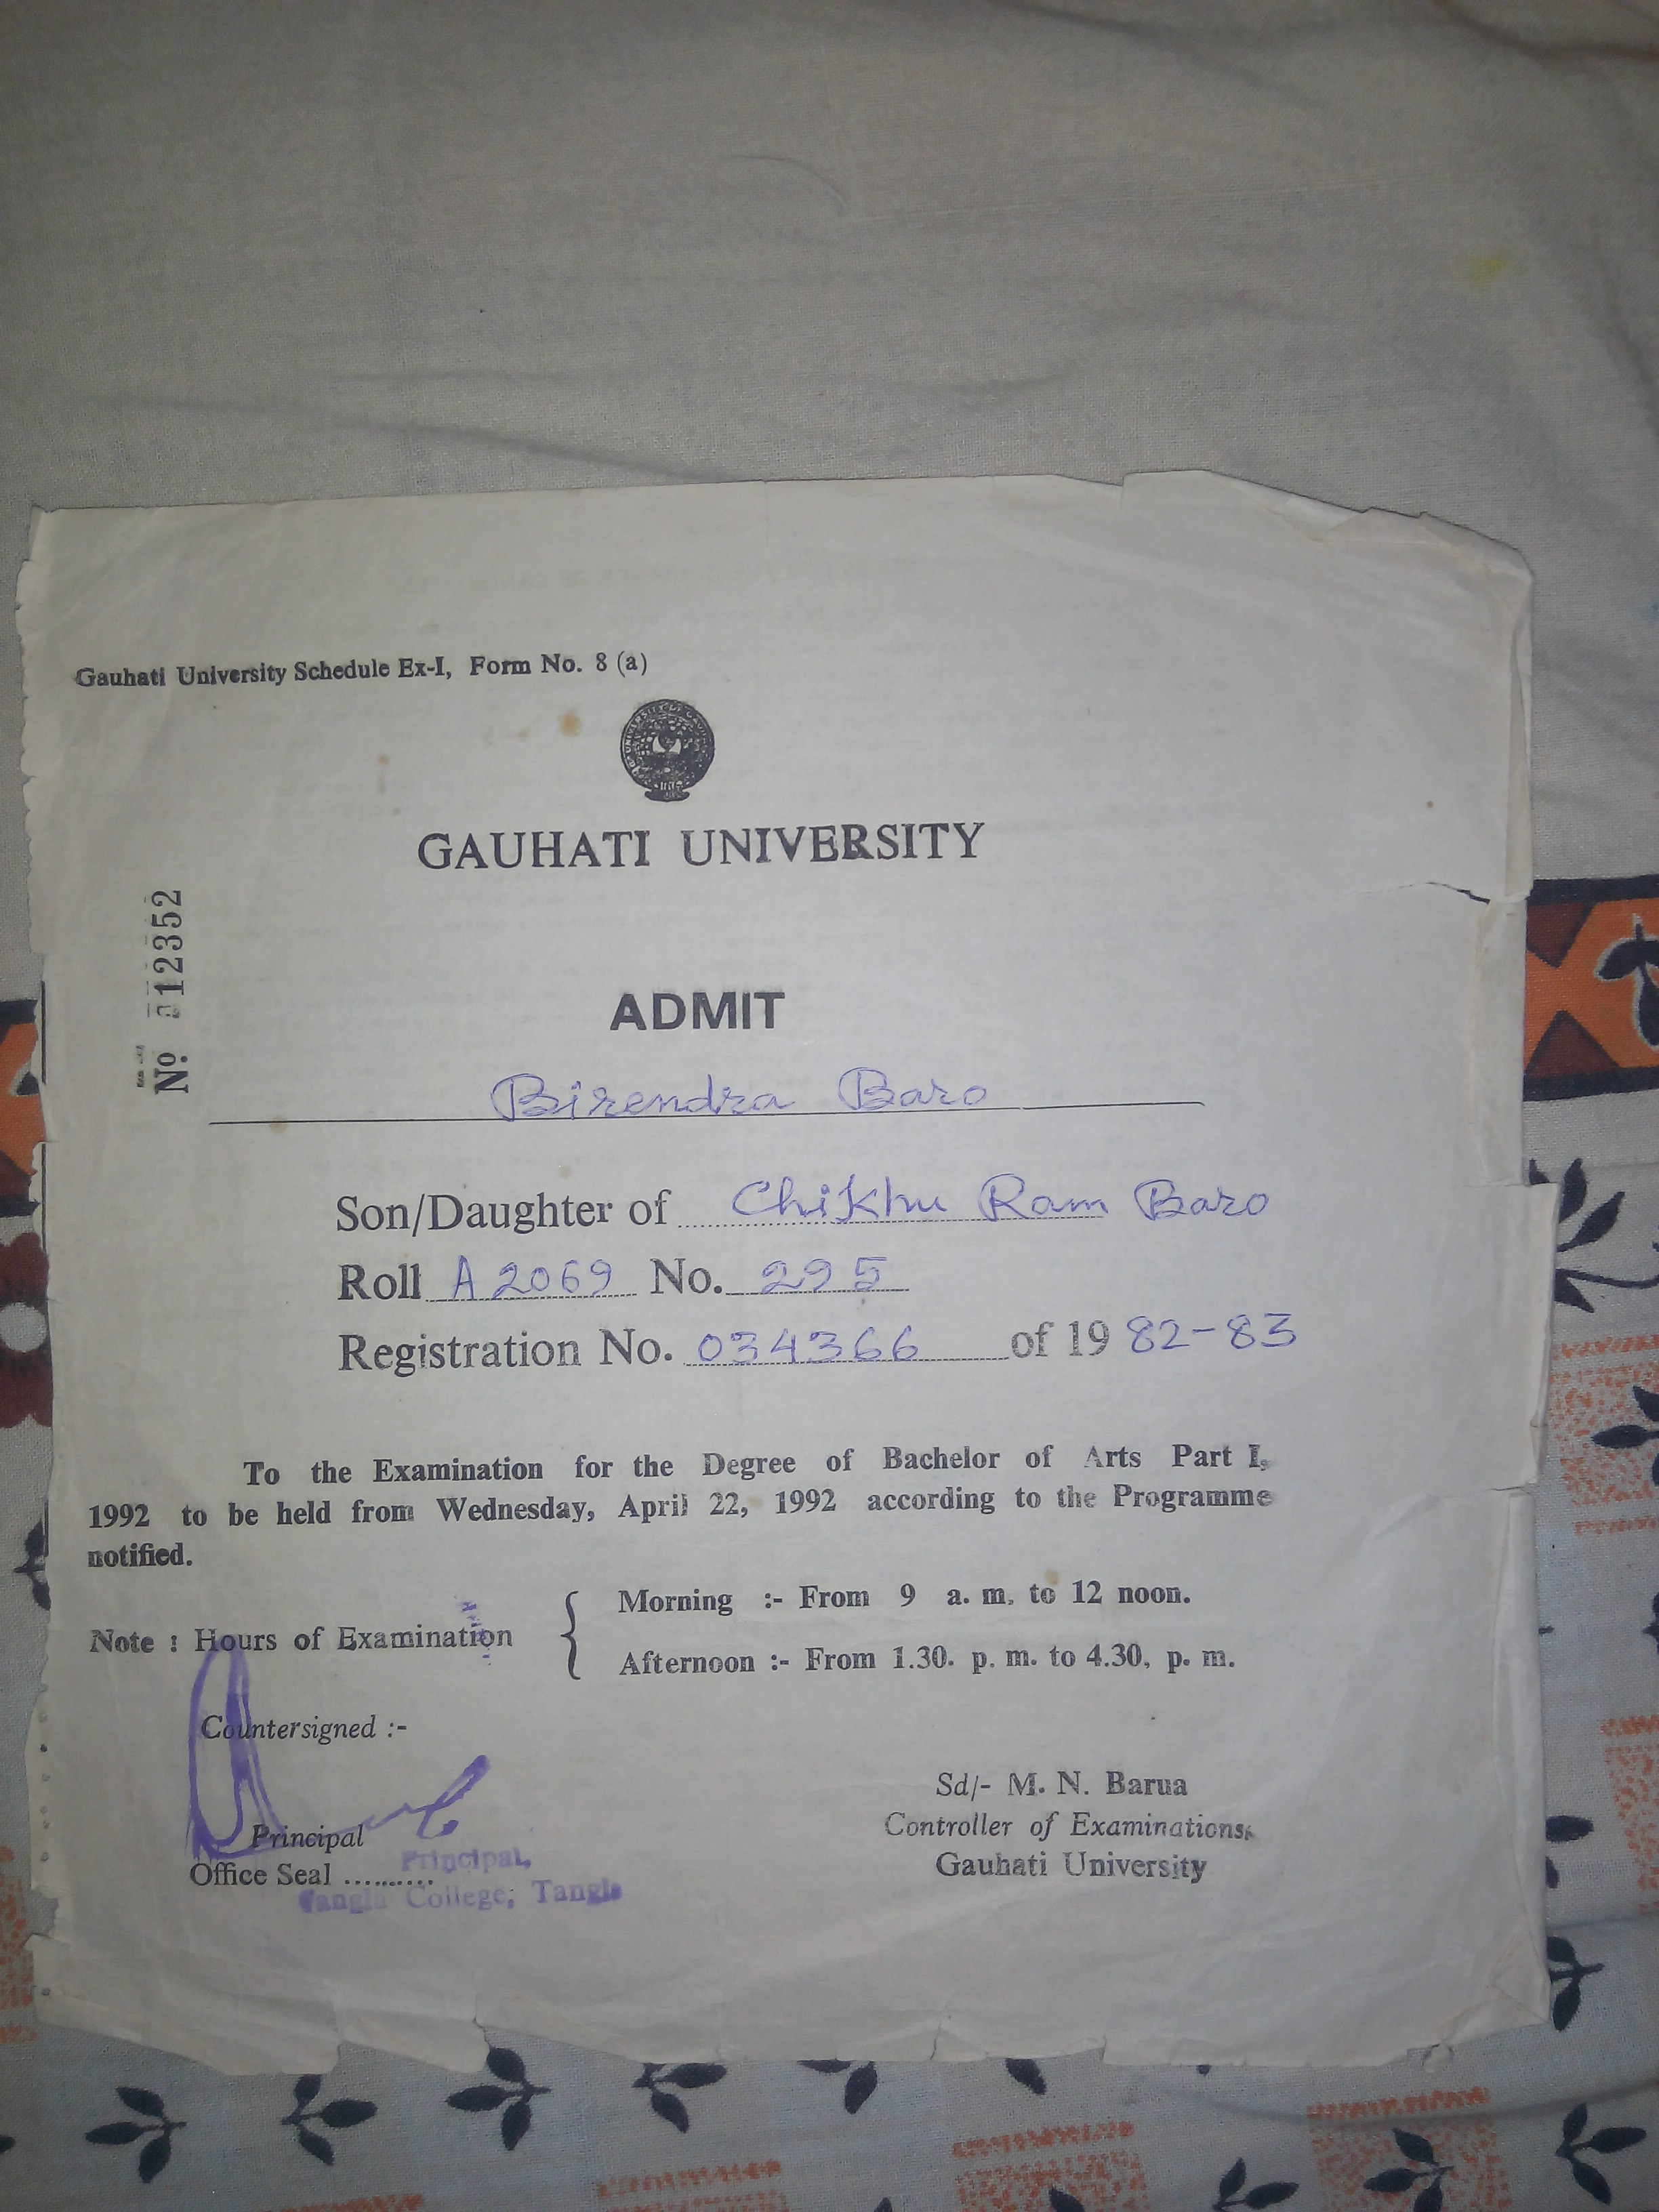 Gauhati University Schedule Ex-I, Form No. 8 (a)
GAUHATI UNIVERSITY
No. 012352
ADMIT
Birendra Baro
Son/Daughter of Chikhu Ram Baro
Roll A 2069 No. 295
Registration No. 034366 of 19 82-83
To the Examination for the Degree of Bachelor of Arts Part I,
1992 to be held from Wednesday, April 22, 1992 according to the Programme
notified.
Note : Hours of Examination { Morning :- From 9 a. m. to 12 noon.
Afternoon :- From 1.30. p. m. to 4.30, p. m.
Countersigned :-
Sd/- M. N. Barua
Controller of Examinations,
Gauhati University
Principal
Office Seal ..........
Principal,
Tangla College, Tangla